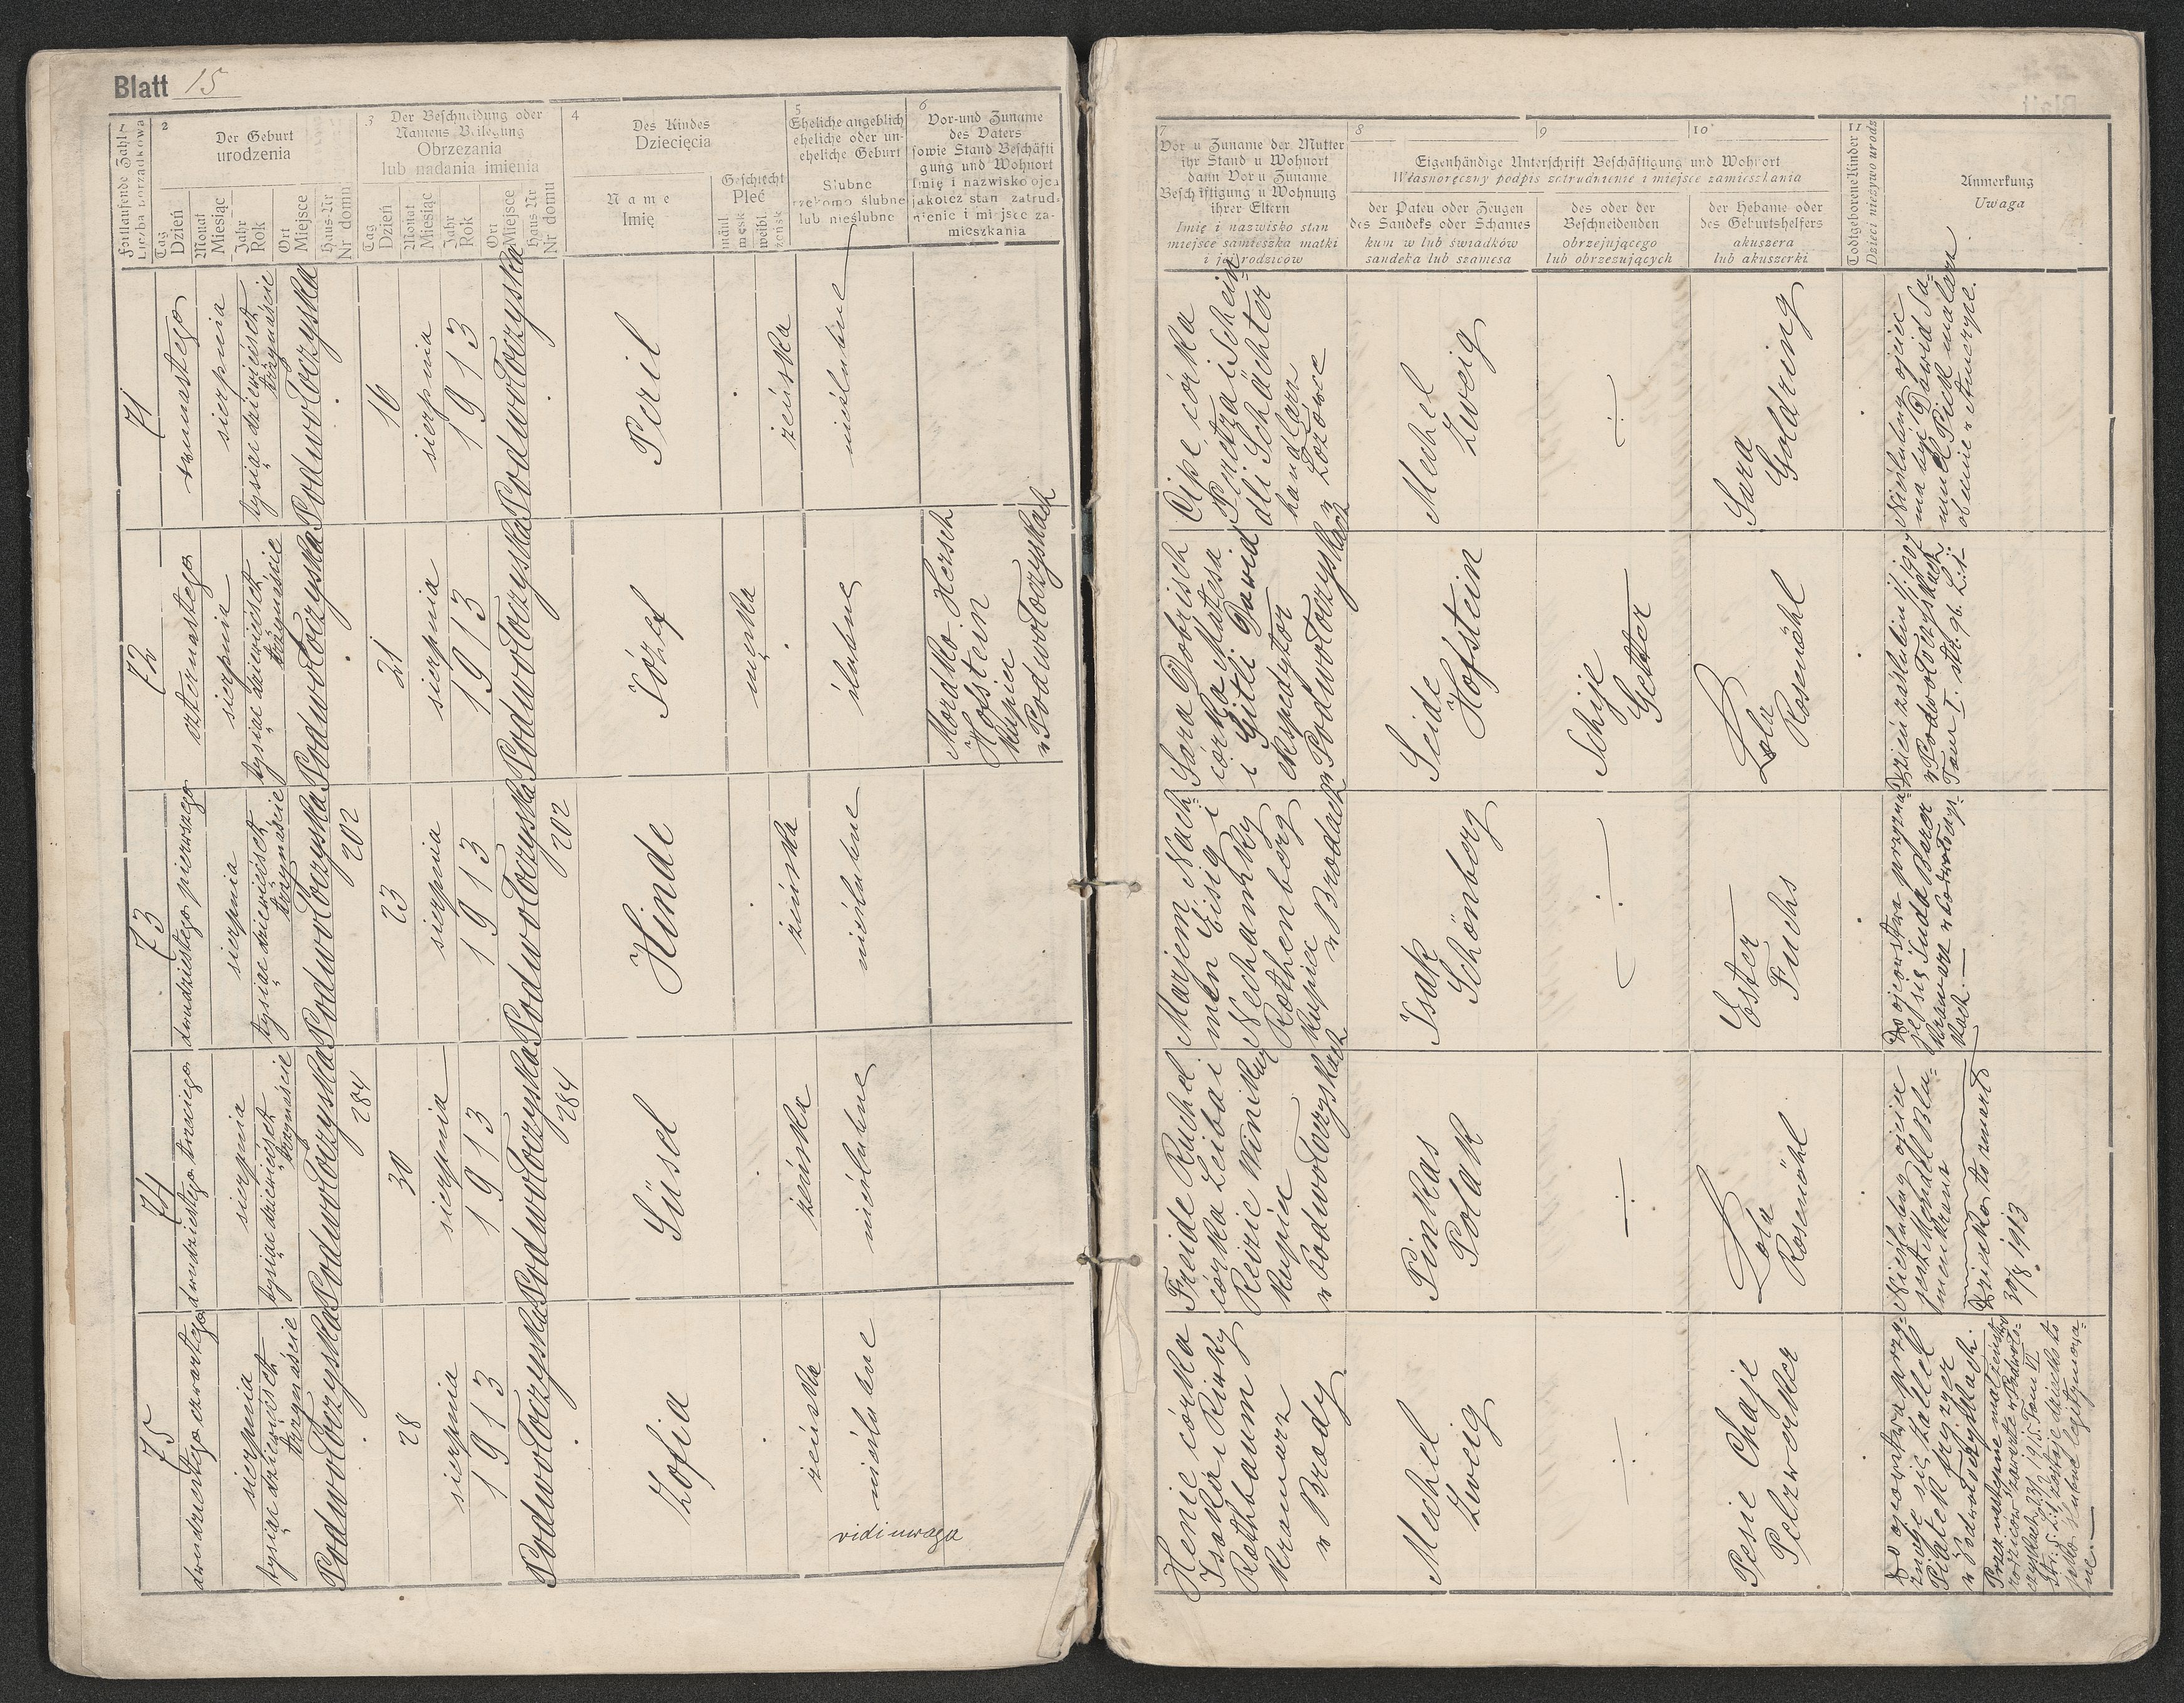 Blatt 15
Fortlaufende Zahl
Liczba porządkowa
2
Der Geburt
urodzenia
Tag
Dzień
Monat
Miesiąc
Jahr
Rok
Ort
Miejsce
Haus-Nr
Nr domu
3
Der Beschneidung oder
Namens Beilegung
Obrzezania
lub nadania imienia
Tag
Dzień
Monat
Miesiąc
Jahr
Rok
Ort
Miejsce
Haus-Nr
Nr domu
4
Des Kindes
Dziecięcia
Name
Imię
Geschlecht
Płeć
mänl
męsk
weibl.
żeńsk
5
Eheliche angeblich
eheliche oder un-
eheliche Geburt
Ślubne
rzekomo ślubne
lub nieślubne
6
Vor- und Zuname
des Vaters
sowie Stand Beschäfti
gung und Wohnort
Imię i nazwisko ojca
jakoteż stan zatrud-
nienie i miejsce za-
mieszkania
7
Vor u Zuname der Mutter
ihr Stand u Wohnort
dann Vor u Zuname
Beschäftigung u Wohnung
ihrer Eltern
Imię i nazwisko stan
miejsce zamieszka matki
i jej rodziców
8
9
10
Eigenhändige Unterschrift Beschäftigung und Wohnort
Własnoręczny podpis zatrudnienie i miejsce zamieszkania
der Paten oder Zeugen
des Sandeks oder Schames
kum w lub świadków
sandeka lub szamesa
des oder der
Beschneidenden
obrzejującego
lub obrzezujących
der Hebame oder
des Geburtshelfers
akuszera
lub akuszerki
11
Todtgeborene Kinder
Dzieci nieżywo urodz
Anmerkung
Uwaga
71
sierpnia
tysiąc dziewięćset
trzynaście
Podwołoczyska
16
sierpnia
1913
Podwołoczyska
Peril
żeńska
nieślubne
Cipe, córka
Pinkasa i Schein
dli Schächter
handlarz
w Łozówce
Mechel
Zweig
÷
Sara
Goldring
Nieślubny ojciec
ma być Dawid Sa-
muel Pick malarz
obecnie w Ameryce.
72
czternastego
sierpnia
tysiąc dziewięćset
trzynaście
Podwołoczyska
21
sierpnia
1913
Podwołoczyska
Józef
męska
ślubne
Mordko Hersch
Hofstein
kupiec
w Podwołoczyskach
Sara Dobrisch
córka Matesa
i Gitli Dawid
ekspedytor
w Podwołoczyskach
Seide
Hofstein
Schije
Getter
Lola
Rosenöhl
w Podwołoczyskach
Tom I. str. 96. L. 1.
73
dwudziestego pierwszego
sierpnia
tysiąc dziewięćset
trzynaście
Podwołoczyska
202
23
sierpnia
1913
Podwołoczyska
202
Hinde
żeńska
nieślubne
Marjem Nech-
men Eisig i
Nechamky
Rothenberg
kupiec
w Brodach
Isak
Schönberg
÷
Ester
Fuchs
Do ojcostwa przyzna-
jeł się Juda Barer
kramarz w Podwołoczy-
skach.
74
dwudziestego trzeciego
sierpnia
tysiąc dziewięćset
trzynaście
Podwołoczyska
284
30
sierpnia
1913
Podwołoczyska
284
Süsel
żeńska
nieślubne
Freide Ruchel
córka Leiba i
Reizie Winiku
kupiec
w Podwołoczyskach
Pinkas
Polak
÷
Lola
Rosenöhl
Nieślubny ojciec
jest Mendel Blu-
menkranz
Dziecko to zmarło
30/8 1913
75
dwudziestego czwartego
sierpnia
tysiąc dziewięćset
trzynaście
Podwołoczyska
28
sierpnia
1913
Podwołoczyska
Zofia
żeńska
nieślubne
vidi uwaga
Henie córka
Isaka i Riwky
Rothbaum
kramarz
w Brody
Mechel
Zweig
÷
Pesie Chaje
Pelzwerker
Do ojcostwa przy-
znaje się Kallel
Piatek fryzyer
w Podwołoczyskach.
Przez następne małżeństwo
rodziców zawarte w Podwoło-
czyskach 23/1 1915. Tom VI.
str. 5. L. 2. zostaje dziecko to
jako ślubne legitymowa-
ne.